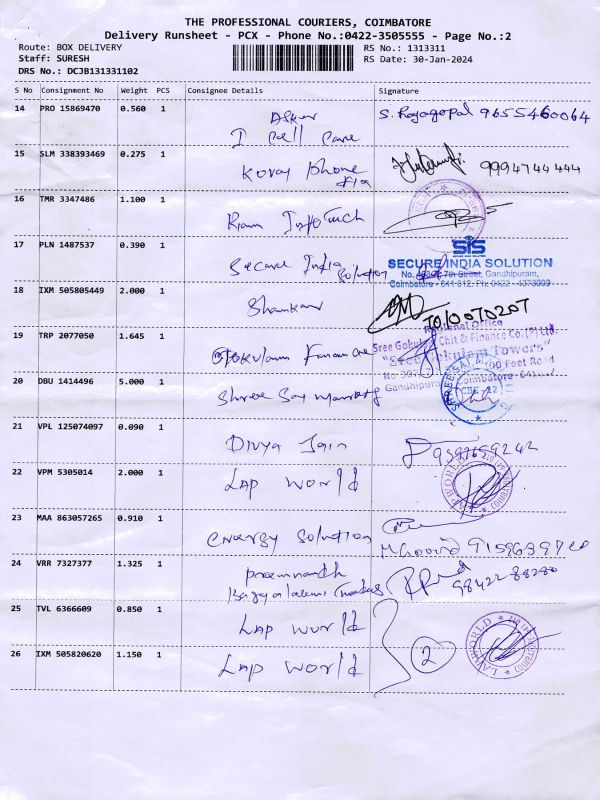 THE PROFESSIONAL COURIERS, COIMBATORE
Delivery Runsheet - PCX - Phone No.:0422-3505555 - Page No.:2
Route: BOX DELIVERY RS No.: 1313311
Staff: SURESH RS Date: 30-Jan-2024
DRS No.: DCJB131331102
S No Consignment No Weight PCS Consignee Details Signature
14 PRO 15869470 0.560 1 S. Rajagopal 9655460064
I cell care
15 SLM 338393469 0.275 1 Kovai phone 9994744444
16 TMR 3347486 1.100 1 Ram InfoTech
17 PLN 1487537 0.390 1 Secure India Solution
SiS
SECURE INDIA SOLUTION
7th Street, Gandhipuram,
Coimbatore - 641 012. Ph: 0422 - 4373009
18 IXM 505805449 2.000 1 Shankar 7010070207
19 TRP 2077050 1.645 1 Gokulam
Regional Office
Sree Gokulam Chit & Finance Co.(P) Ltd.
"Sree Gokulam Towers"
100 Feet Road
Gandhipuram Coimbatore - 641
20 DBU 1414496 5.000 1 Shree Sai
21 VPL 125074097 0.090 1 Divya Jain
22 VPM 5305014 2.000 1 LAP World
LAP WORLD
23 MAA 863057265 0.910 1 energy Solution
24 VRR 7327377 1.325 1 premnandh
9842288280
25 TVL 6366609 0.850 1 LAP World
26 IXM 505820620 1.150 1 LAP World 2
LAP WORLD